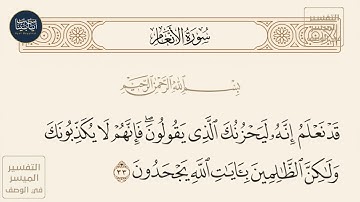 سُورَةُ الأَنْعَام
بِسْمِ اللَّهِ الرَّحْمَٰنِ الرَّحِيمِ
قَدْ نَعْلَمُ إِنَّهُۥ لَيَحْزُنُكَ ٱلَّذِى يَقُولُونَ ۖ فَإِنَّهُمْ لَا يُكَذِّبُونَكَ
وَلَٰكِنَّ ٱلظَّٰلِمِينَ بِـَٔايَٰتِ ٱللَّهِ يَجْحَدُونَ ٣٣
التفسير
الميسر
في الوصف
التفسير
الميسر